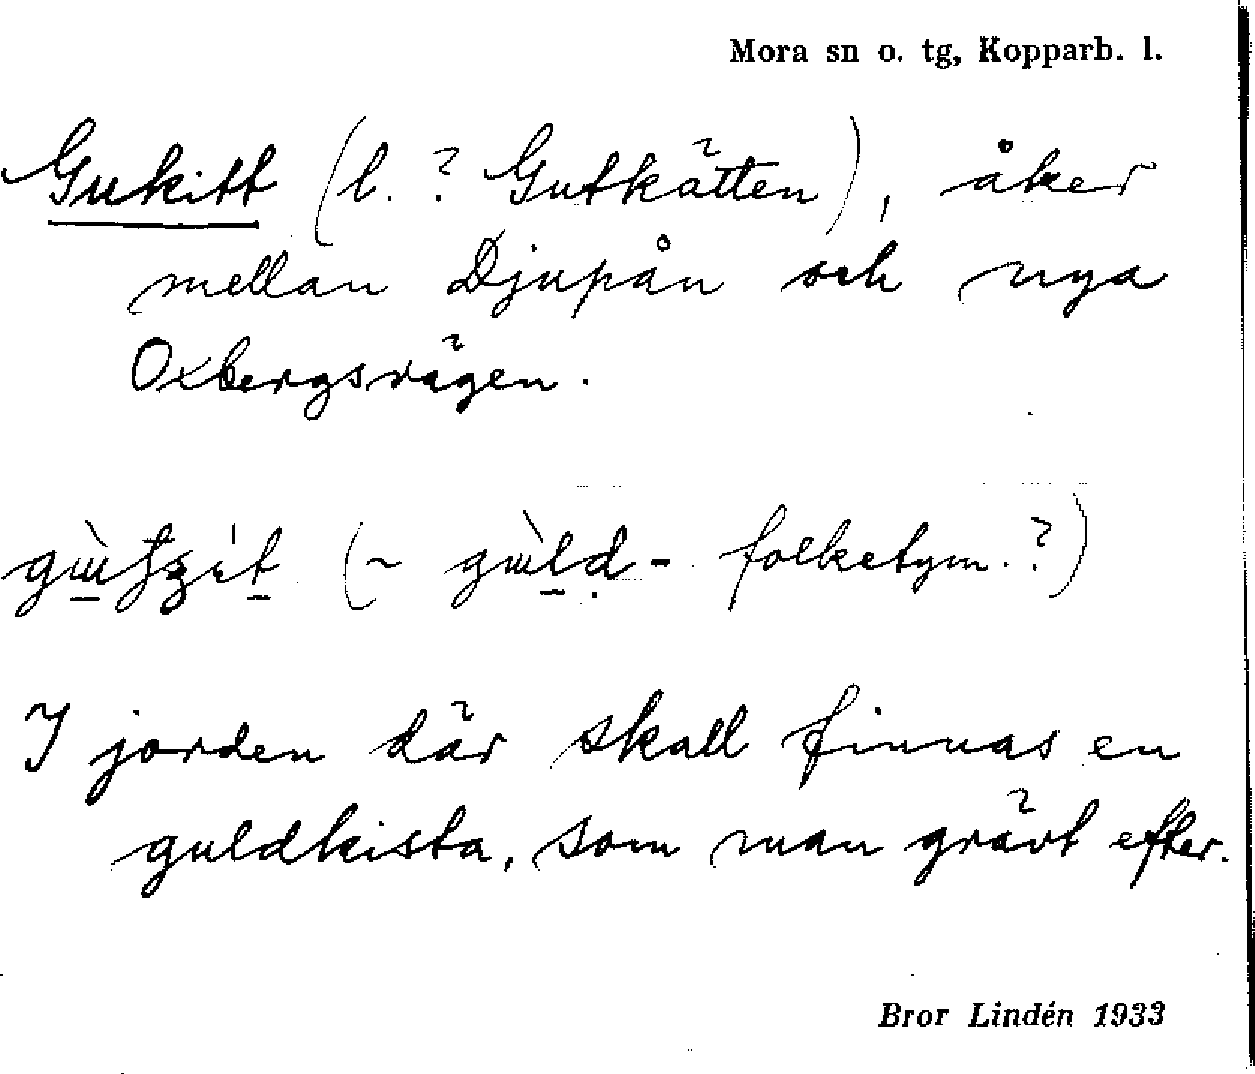 Mora sn o. tg, Kopparb. l.
Gukitt (l. ? Gutkätten), åker
mellan Djupån och nya
Oxbergsvägen.
(~ - folketym.?)
I jorden där skall finnas en
guldkista, som man grävt efter.
Bror Lindén 1933